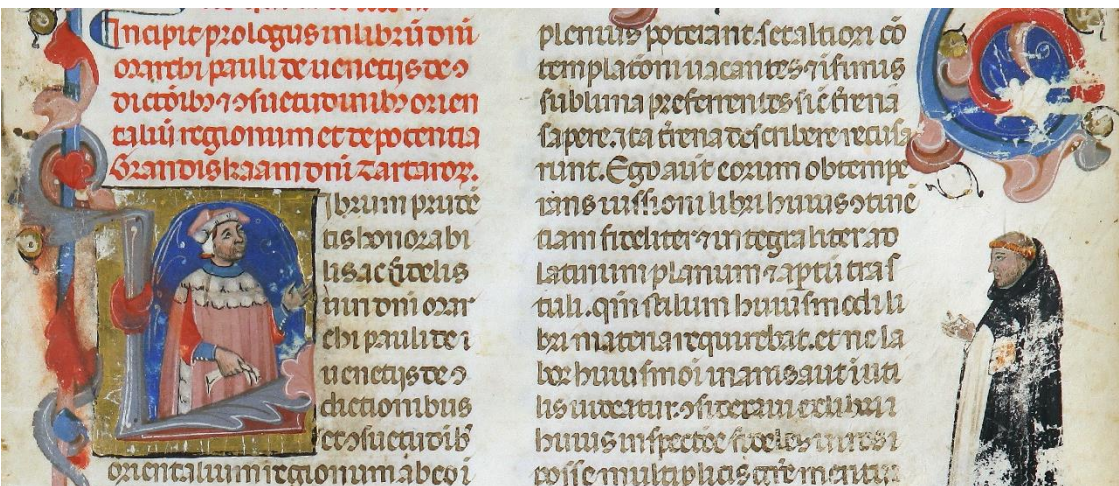 Incipit prologus in librū dn̄i
marchi pauli de uenetijs de ↄ
dictōib⁊ ⁊ ↄsuetudinib⁊ orien
taliū regionum et de potentia
Grandis kaam dn̄i Tartaroꝝ.
Librum prudē
tis honorabi
lis ac fidelis
uiri dn̄i mar
chi pauli de i
uenetijs de ↄ
dictionibus
et ↄsuetudib̄
orientalium regionum ab eo i
plenius poterant. set altiori cō
templatōni uacantes ⁊ ifimis
sublimia preferentes sic t̄rena
sapere. ita t̄rena describere recusa
runt. Ego aūt eorum obtempe
rans iussioni libri huius ↄtinē
tiam fideliter ⁊ integraliter ad
latinum planum ⁊ aptū trās
tuli. qm̄ stilum huiusmodi li
bri materia requirebat. et ne la
bor huiusmōi inanis aut inuti
lis uideatur. ↄsideraui ex libri
huius inspectōe fideles uiros i
posse multiplicis